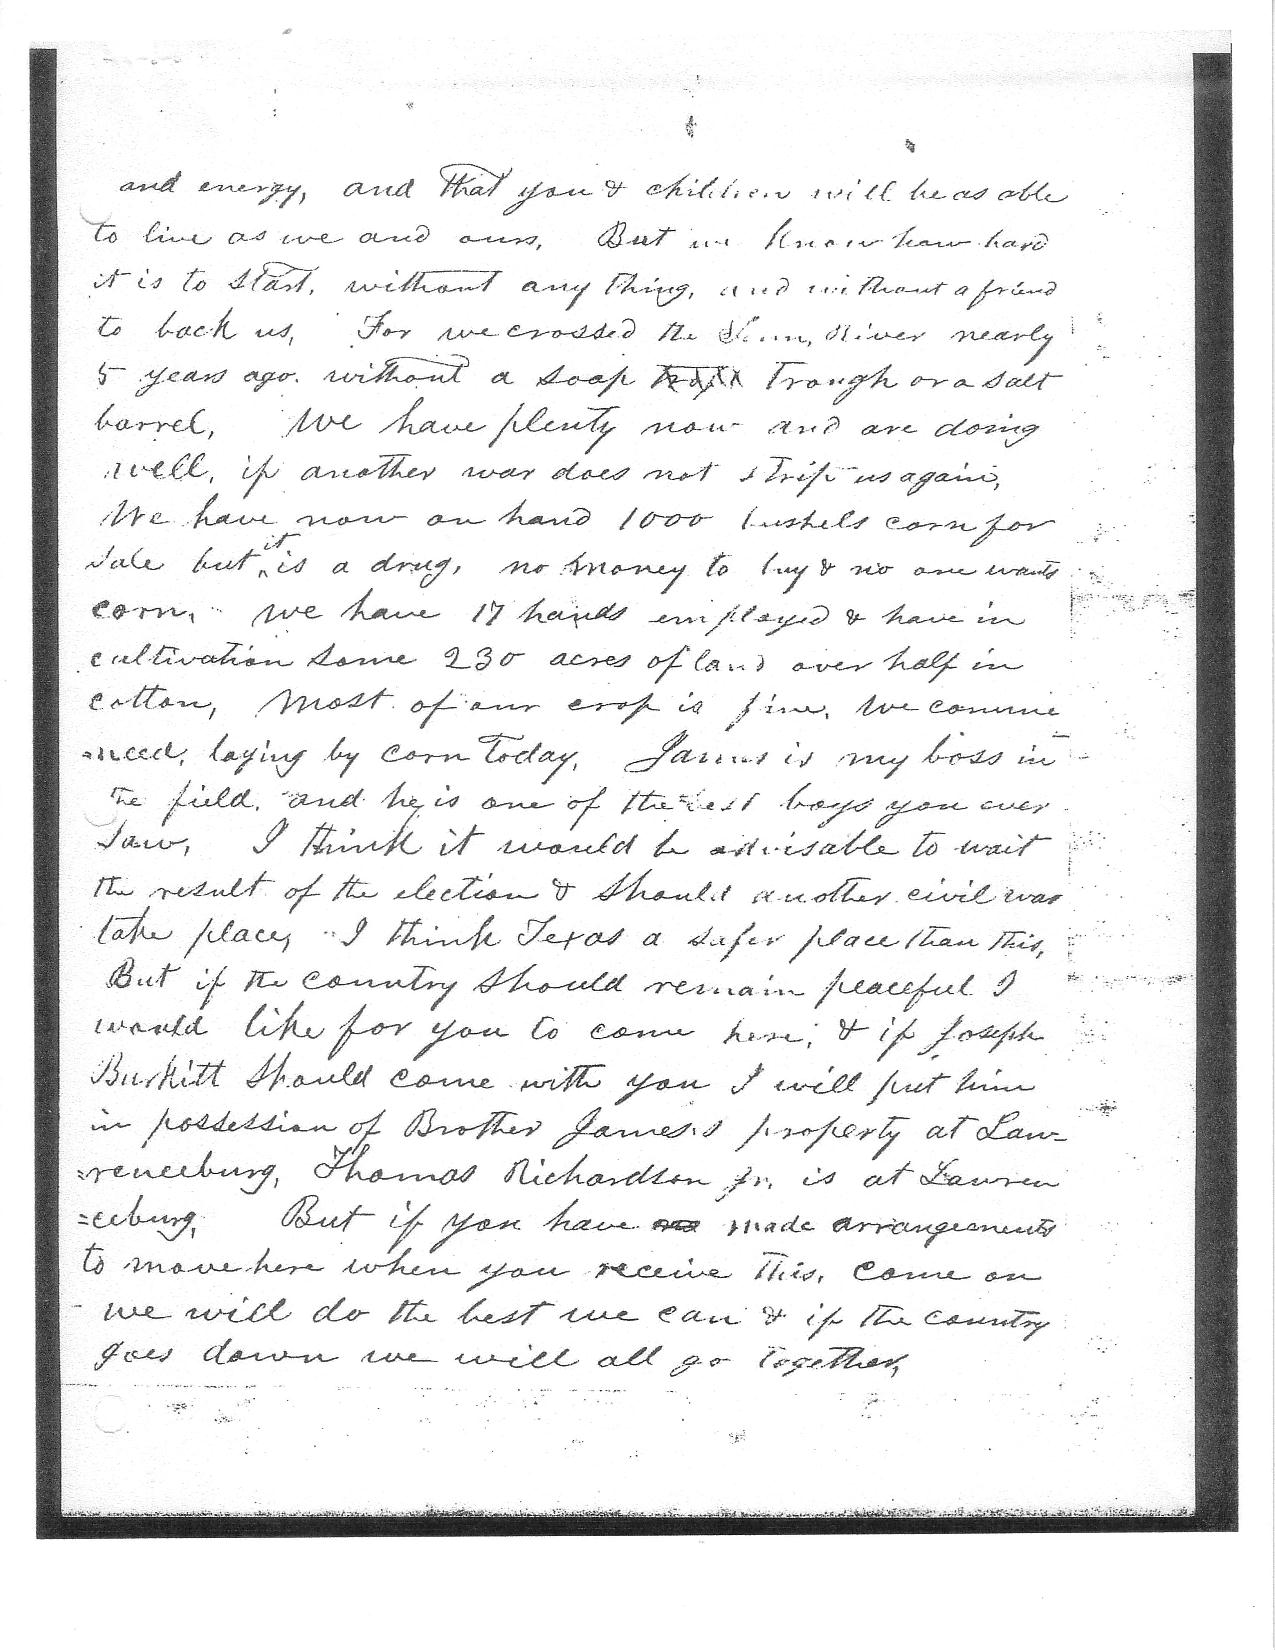 and energy, and that you & children will be as able
to live as we and ours, But we know how hard
it is to start, without any thing, and without a friend
to back us, For we crossed the Tenn, River nearly
5 years ago. without a soap trough or a salt
barrel, We have plenty now and are doing
well, if another war does not strip us again,
We have now on hand 1000 bushels corn for
sale but it is a drug, no money to buy & no one wants
corn, we have 17 hands employed & have in
cultivation some 230 acres of land over half in
cotton, Most of our crop is fine, we comme
=nced, laying by corn today, James is my boss in
the field, and he is one of the best boys you ever
saw, I think it would be advisable to wait
the result of the election & should another civil war
take place, I think Texas a safer place than this,
But if the country should remain peaceful I
would like for you to come here, & if Joseph
Burkitt should come with you I will put him
in possession of Brother James's property at Law=
=renceburg, Thomas Richardson jr. is at Lawren
=ceburg, But if you have made arrangements
to move here when you receive this, come on
we will do the best we can & if the country
goes down we will all go together,